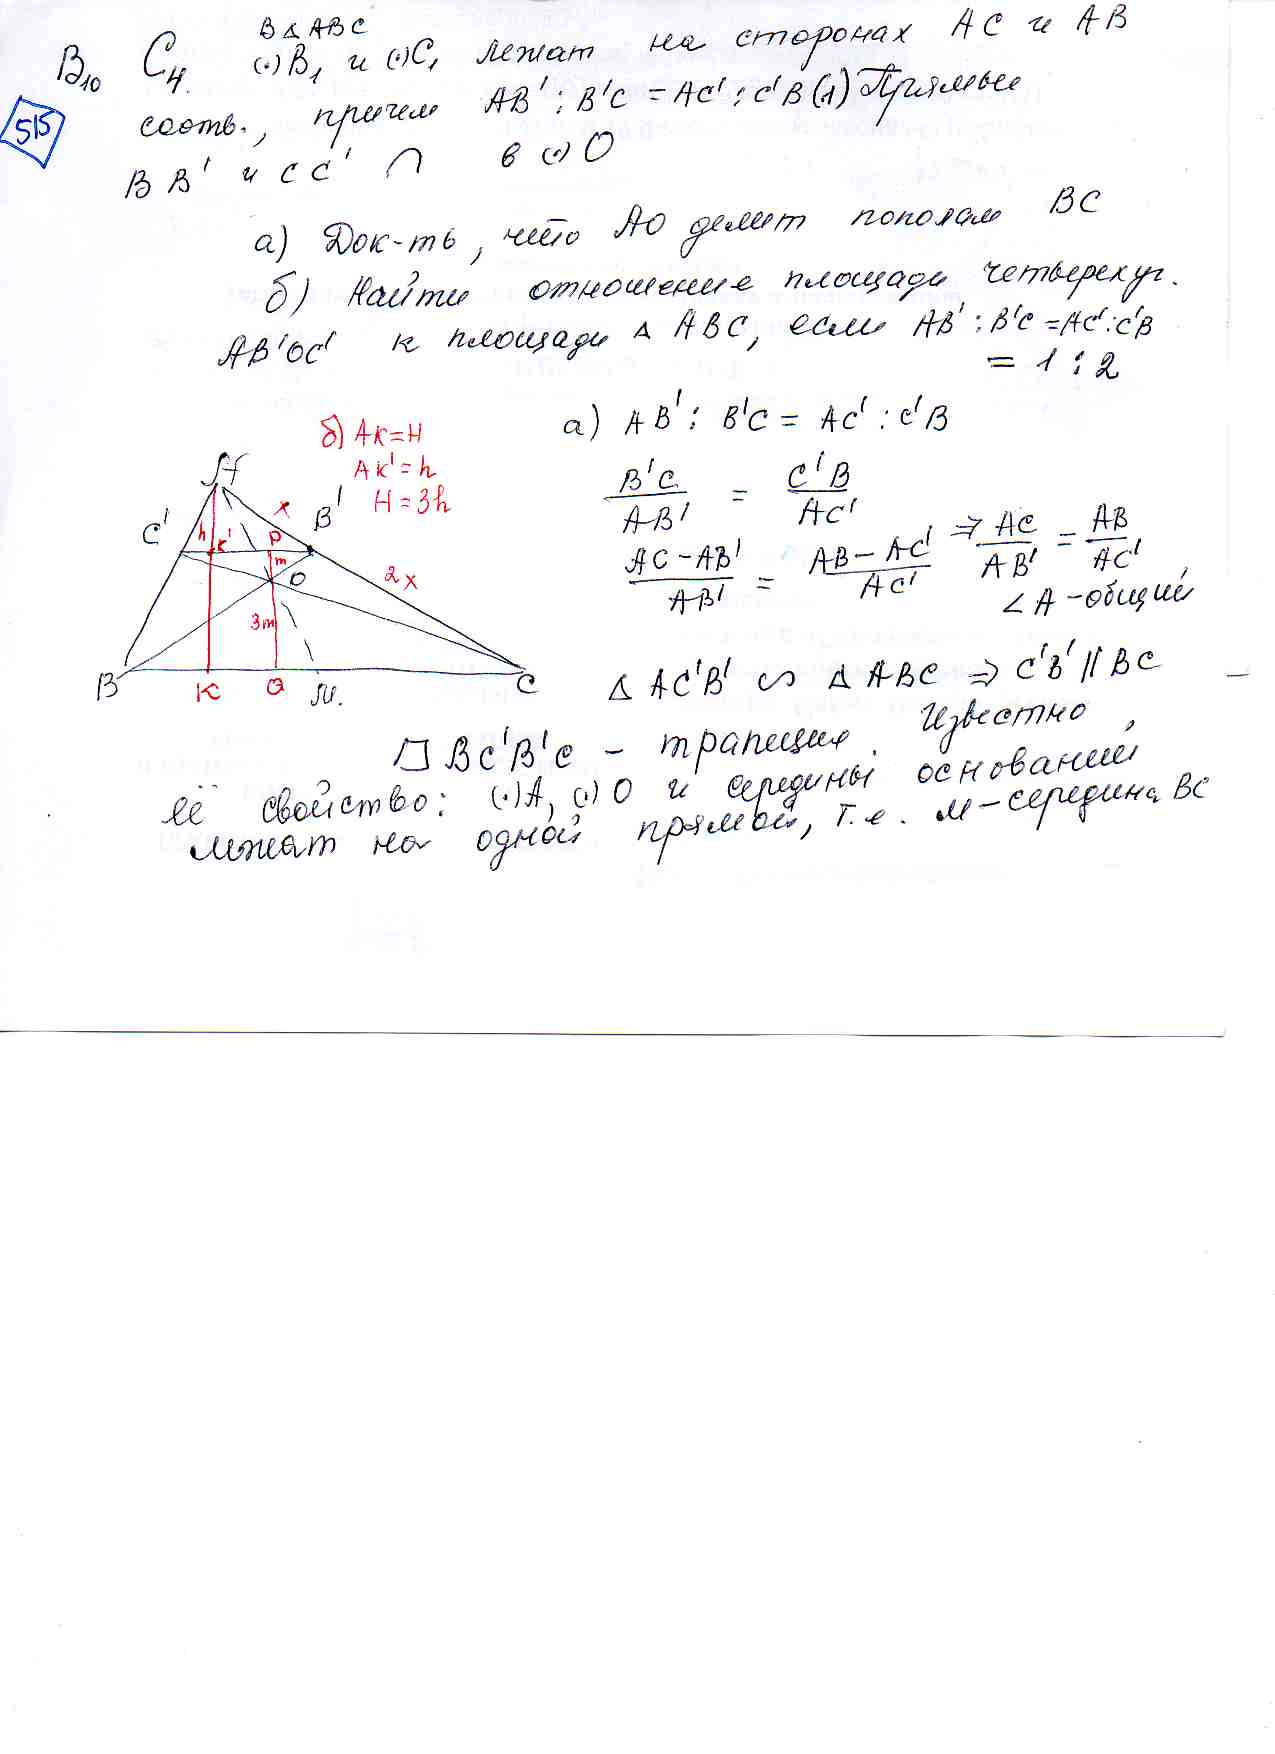 В △ ABC
B10 C4. (·)B1 и (·)C1 лежат на сторонах AC и AB
515
соотв., причем AB' : B'C = AC' : C'B (1) Прямые
BB' и CC' ∩ в (·) O
а) Док-ть, что AO делит пополам BC
б) Найти отношение площади четырехуг.
AB'OC' к площади △ ABC, если AB' : B'C = AC' : C'B
= 1 : 2
б) AK = H
AK' = h
H = 3h
A
C'
h
K'
x
B'
P
m
O
2x
3m
B
K
Q
M.
C
а) AB' : B'C = AC' : C'B
B'C / AB' = C'B / AC'
AC - AB' / AB' = AB - AC' / AC' , ⇒ AC / AB' = AB / AC' ,
∠A - общий
△ AC'B' ∽ △ ABC ⇒ C'B' || BC
▱ BC'B'C - трапеция. Известно,
её свойство: (·)A, (·)O и середины оснований
лежат на одной прямой, т.е. M - середина BC